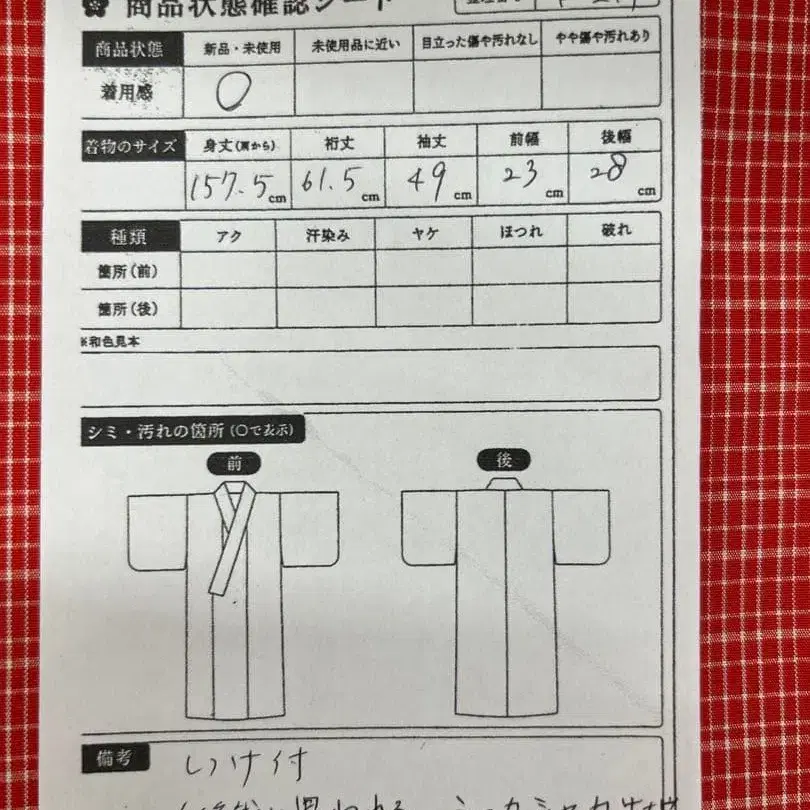 商品状態確認シート
商品状態 新品・未使用 未使用品に近い 目立った傷や汚れなし やや傷や汚れあり
着用感 ○
着物のサイズ 身丈(肩から) 裄丈 袖丈 前幅 後幅
157.5cm 61.5cm 49cm 23cm 28cm
種類 アク 汗染み ヤケ ほつれ 破れ
箇所(前)
箇所(後)
※和色見本
シミ・汚れの箇所(〇で表示)
前 後
備考 しつけ付